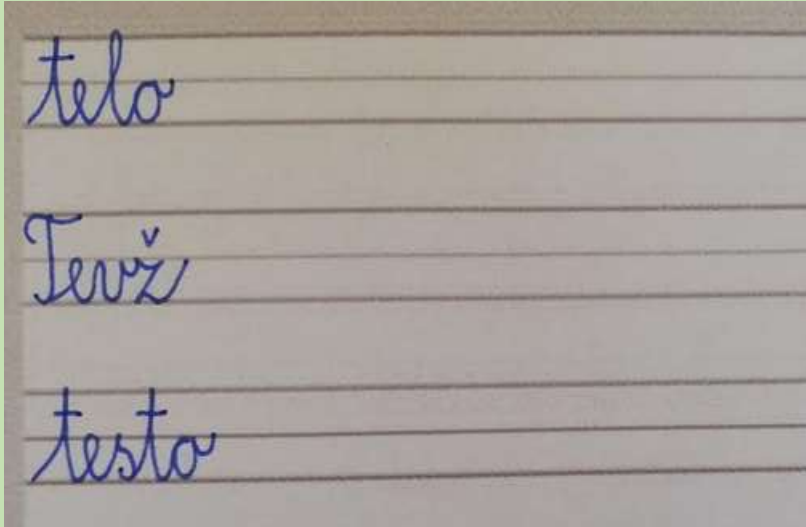 telo
Tevž
testo